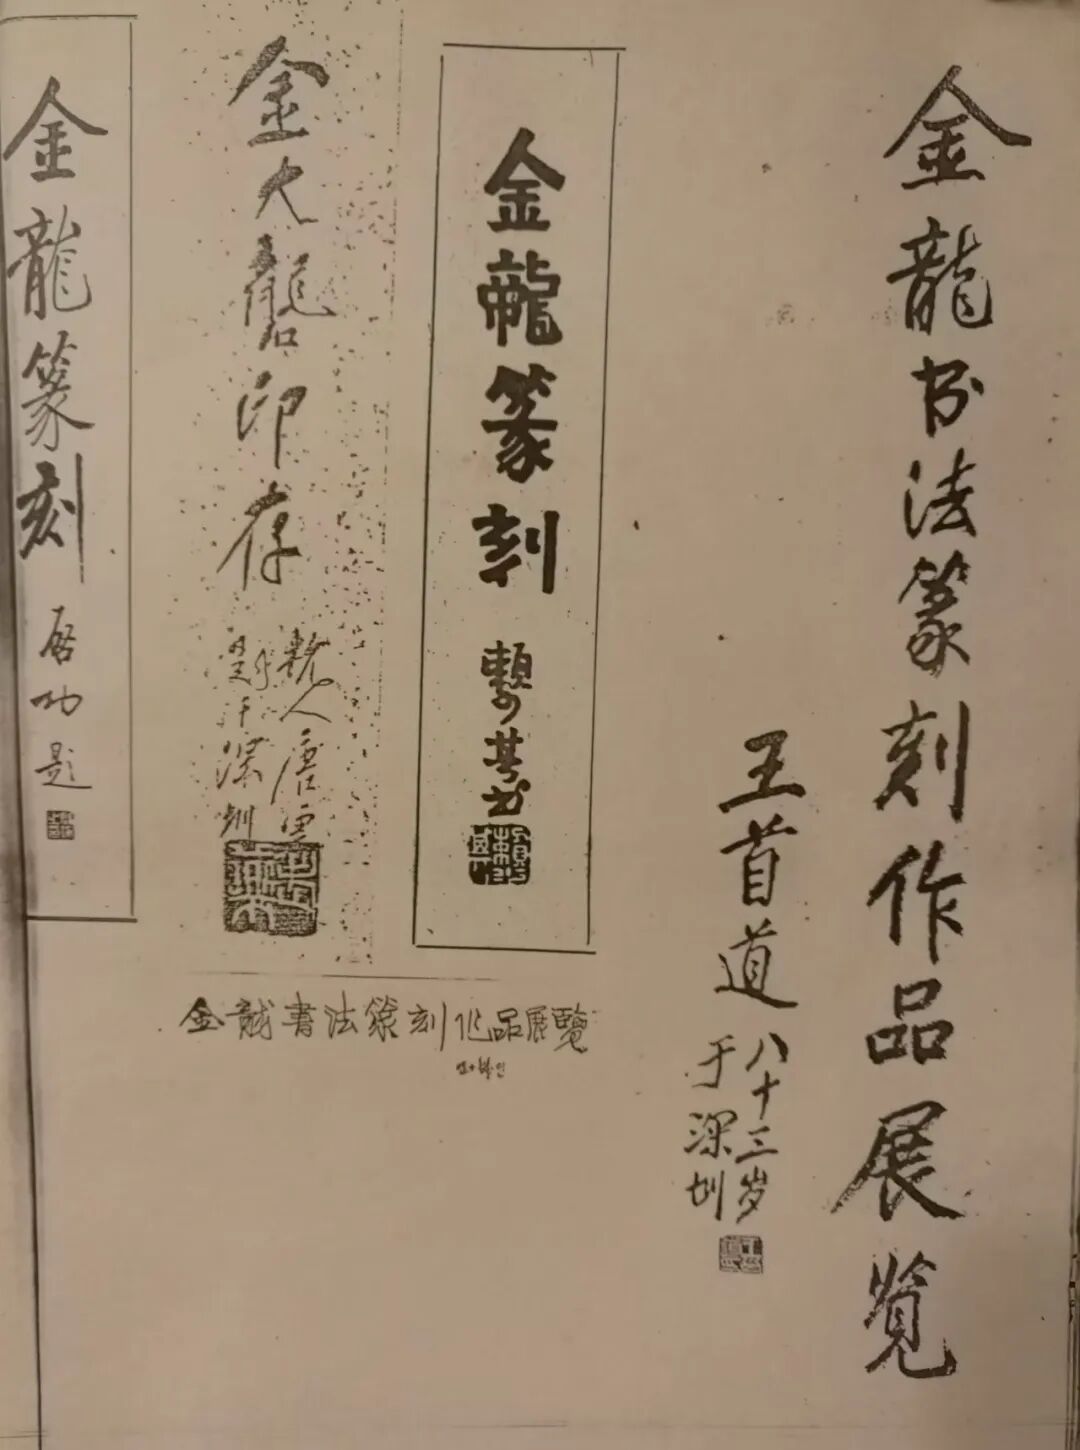 金龍书法篆刻作品展览
王首道
八十三岁
于深圳
金龍篆刻
賴少其書
金大龍石印存
唐雲
于深圳
金龍篆刻
啓功題
金龍書法篆刻作品展覽